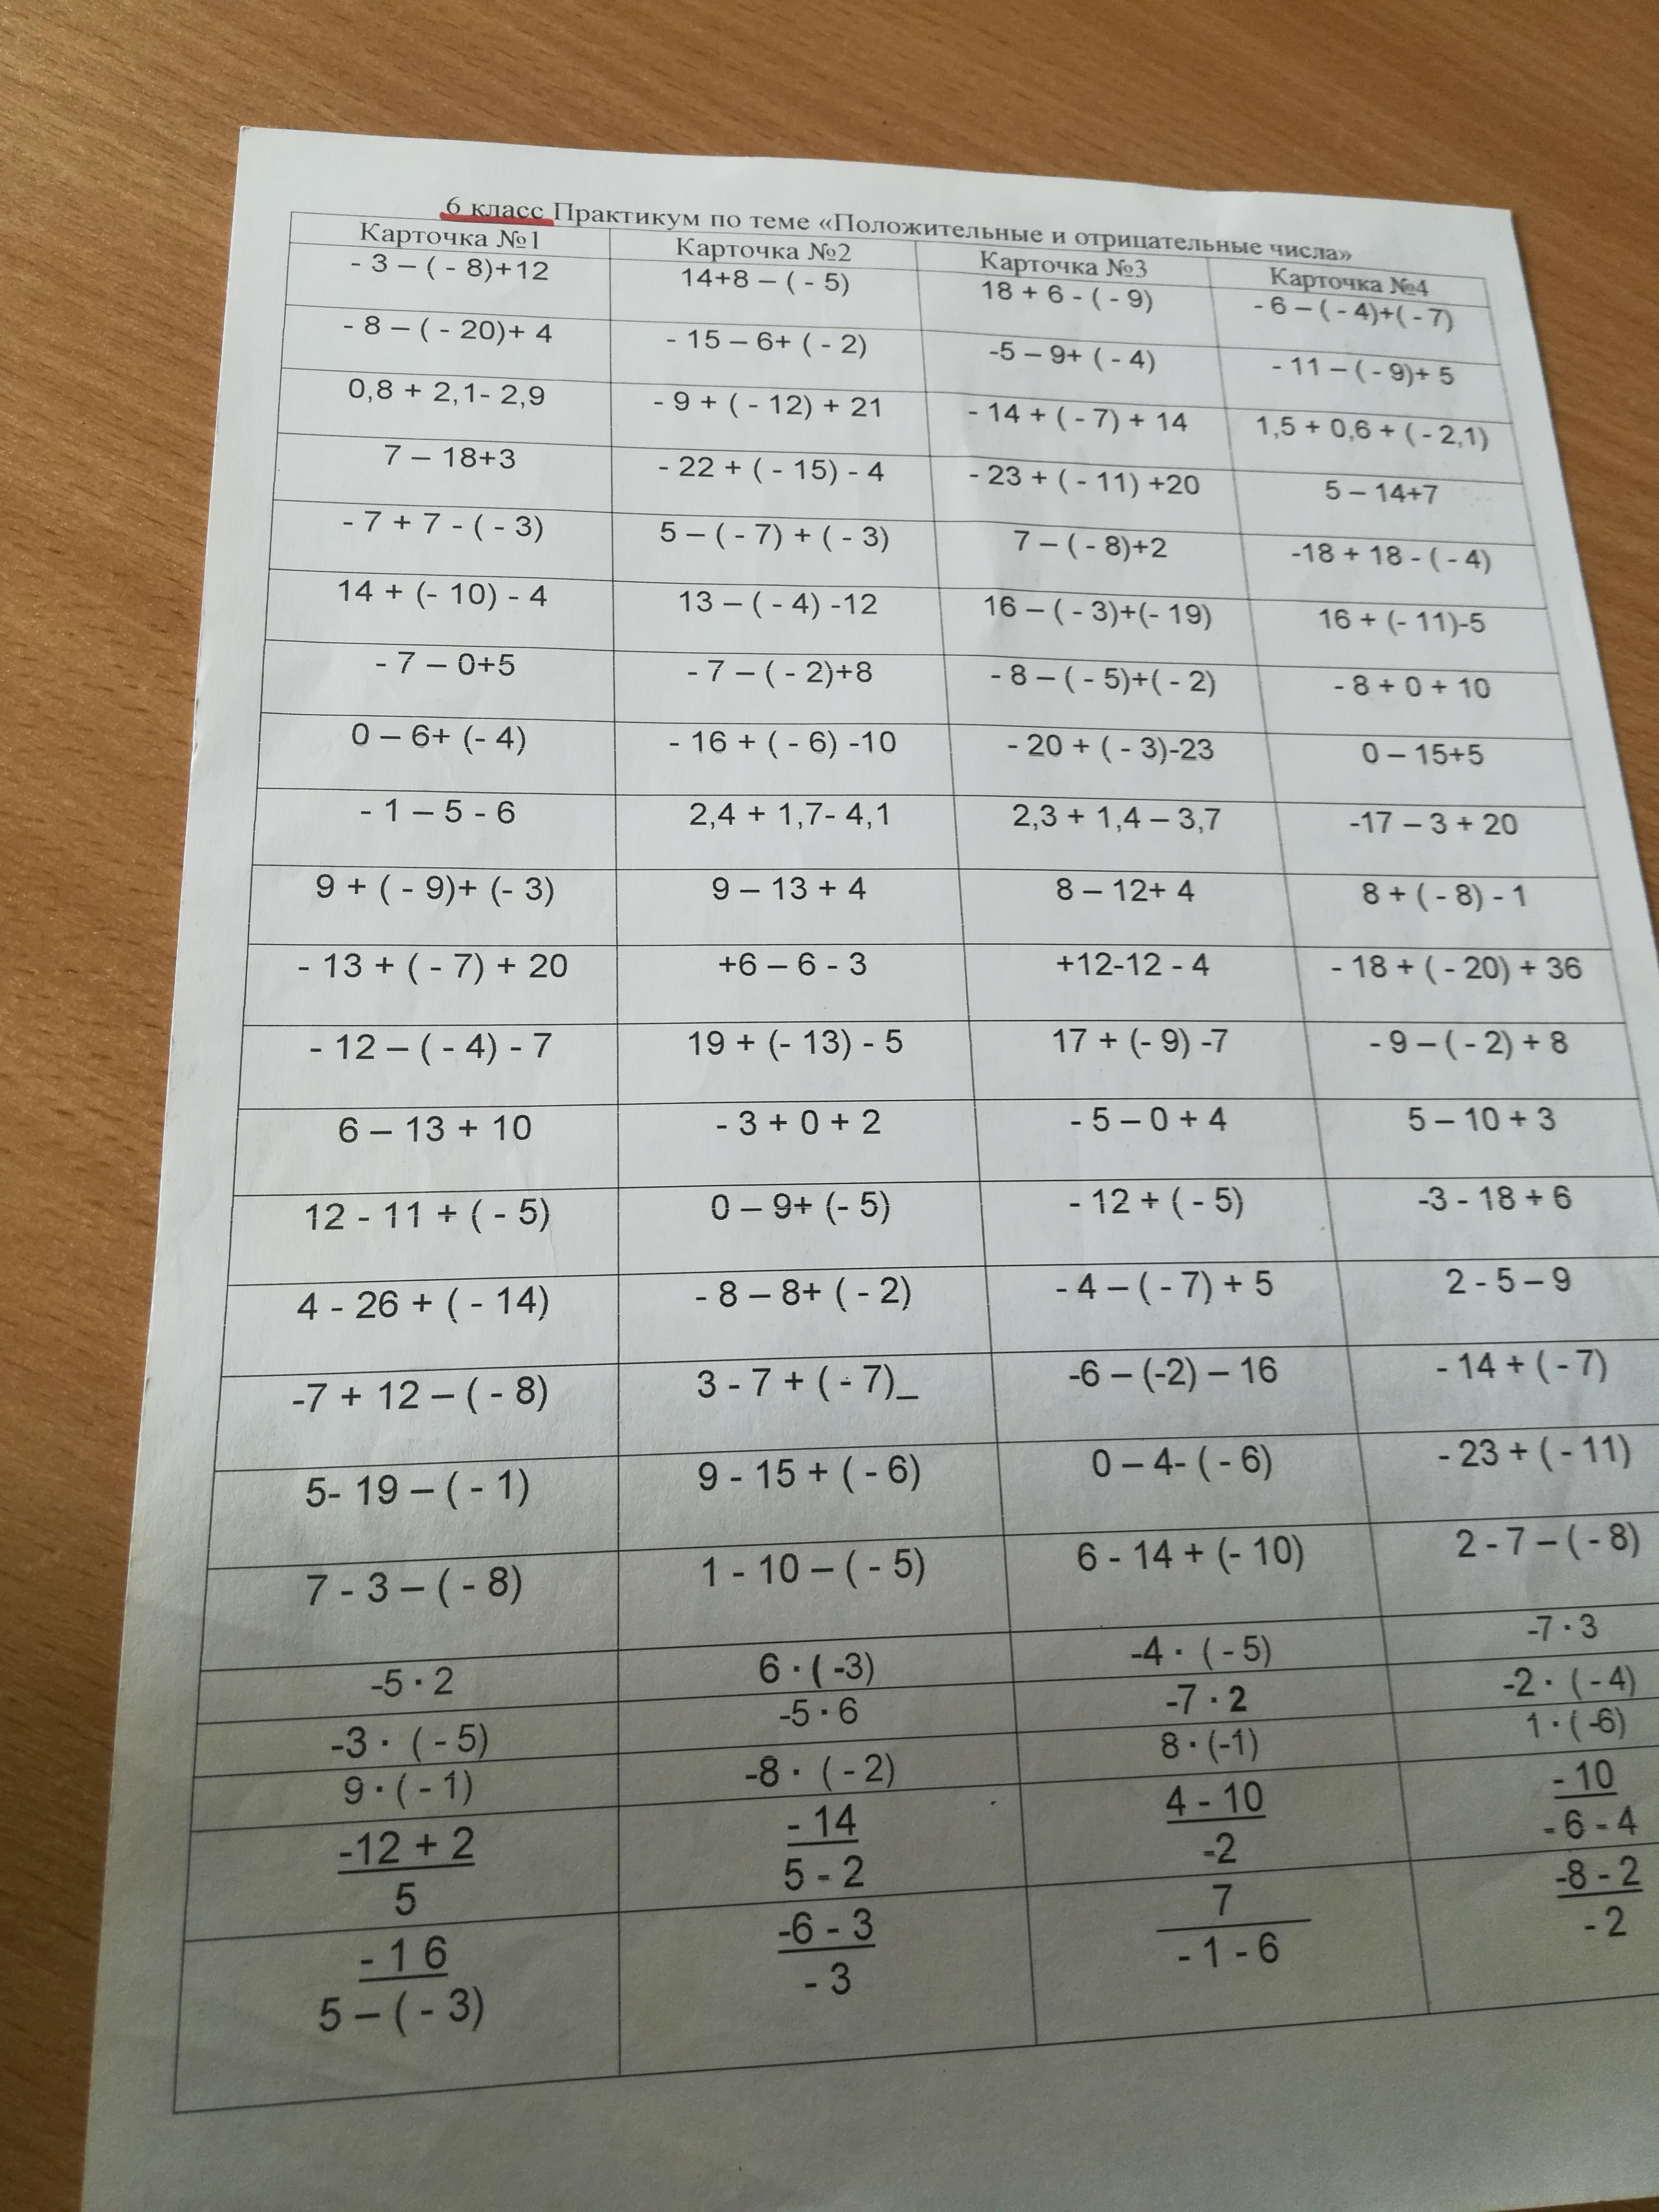 6 класс Практикум по теме «Положительные и отрицательные числа»
Карточка №1 Карточка №2 Карточка №3 Карточка №4
- 3 – ( - 8)+12 14+8 – ( - 5) 18 + 6 - ( - 9) - 6 – ( - 4)+( - 7)
- 8 – ( - 20)+ 4 - 15 – 6+ ( - 2) -5 – 9+ ( - 4) - 11 – ( - 9)+ 5
0,8 + 2,1- 2,9 - 9 + ( - 12) + 21 - 14 + ( - 7) + 14 1,5 + 0,6 + ( - 2,1)
7 – 18+3 - 22 + ( - 15) - 4 - 23 + ( - 11) +20 5 – 14+7
- 7 + 7 - ( - 3) 5 – ( - 7) + ( - 3) 7 – ( - 8)+2 -18 + 18 - ( - 4)
14 + (- 10) - 4 13 – ( - 4) -12 16 – ( - 3)+(- 19) 16 + (- 11)-5
- 7 – 0+5 - 7 – ( - 2)+8 - 8 – ( - 5)+( - 2) - 8 + 0 + 10
0 – 6+ (- 4) - 16 + ( - 6) -10 - 20 + ( - 3)-23 0 – 15+5
- 1 – 5 - 6 2,4 + 1,7- 4,1 2,3 + 1,4 – 3,7 -17 – 3 + 20
9 + ( - 9)+ (- 3) 9 – 13 + 4 8 – 12+ 4 8 + ( - 8) - 1
- 13 + ( - 7) + 20 +6 – 6 - 3 +12-12 - 4 - 18 + ( - 20) + 36
- 12 – ( - 4) - 7 19 + (- 13) - 5 17 + (- 9) -7 - 9 – ( - 2) + 8
6 – 13 + 10 - 3 + 0 + 2 - 5 – 0 + 4 5 – 10 + 3
12 - 11 + ( - 5) 0 – 9+ (- 5) - 12 + ( - 5) -3 - 18 + 6
4 - 26 + ( - 14) - 8 – 8+ ( - 2) - 4 – ( - 7) + 5 2 - 5 – 9
-7 + 12 – ( - 8) 3 - 7 + ( - 7)_ -6 – (-2) – 16 - 14 + ( - 7)
5- 19 – ( - 1) 9 - 15 + ( - 6) 0 – 4- ( - 6) - 23 + ( - 11)
7 - 3 – ( - 8) 1 - 10 – ( - 5) 6 - 14 + (- 10) 2 - 7 – ( - 8)
-5 · 2 6 · ( -3) -4 · ( - 5) -7 · 3
-3 · ( - 5) -5 · 6 -7 · 2 -2 · ( - 4)
9 · ( - 1) -8 · ( - 2) 8 · (-1) 1 · ( -6)
-12 + 2 - 14 4 - 10 - 10
5 5 - 2 -2 - 6 - 4
- 1 6 -6 - 3 7 -8 - 2
5 – ( - 3) - 3 - 1 - 6 - 2